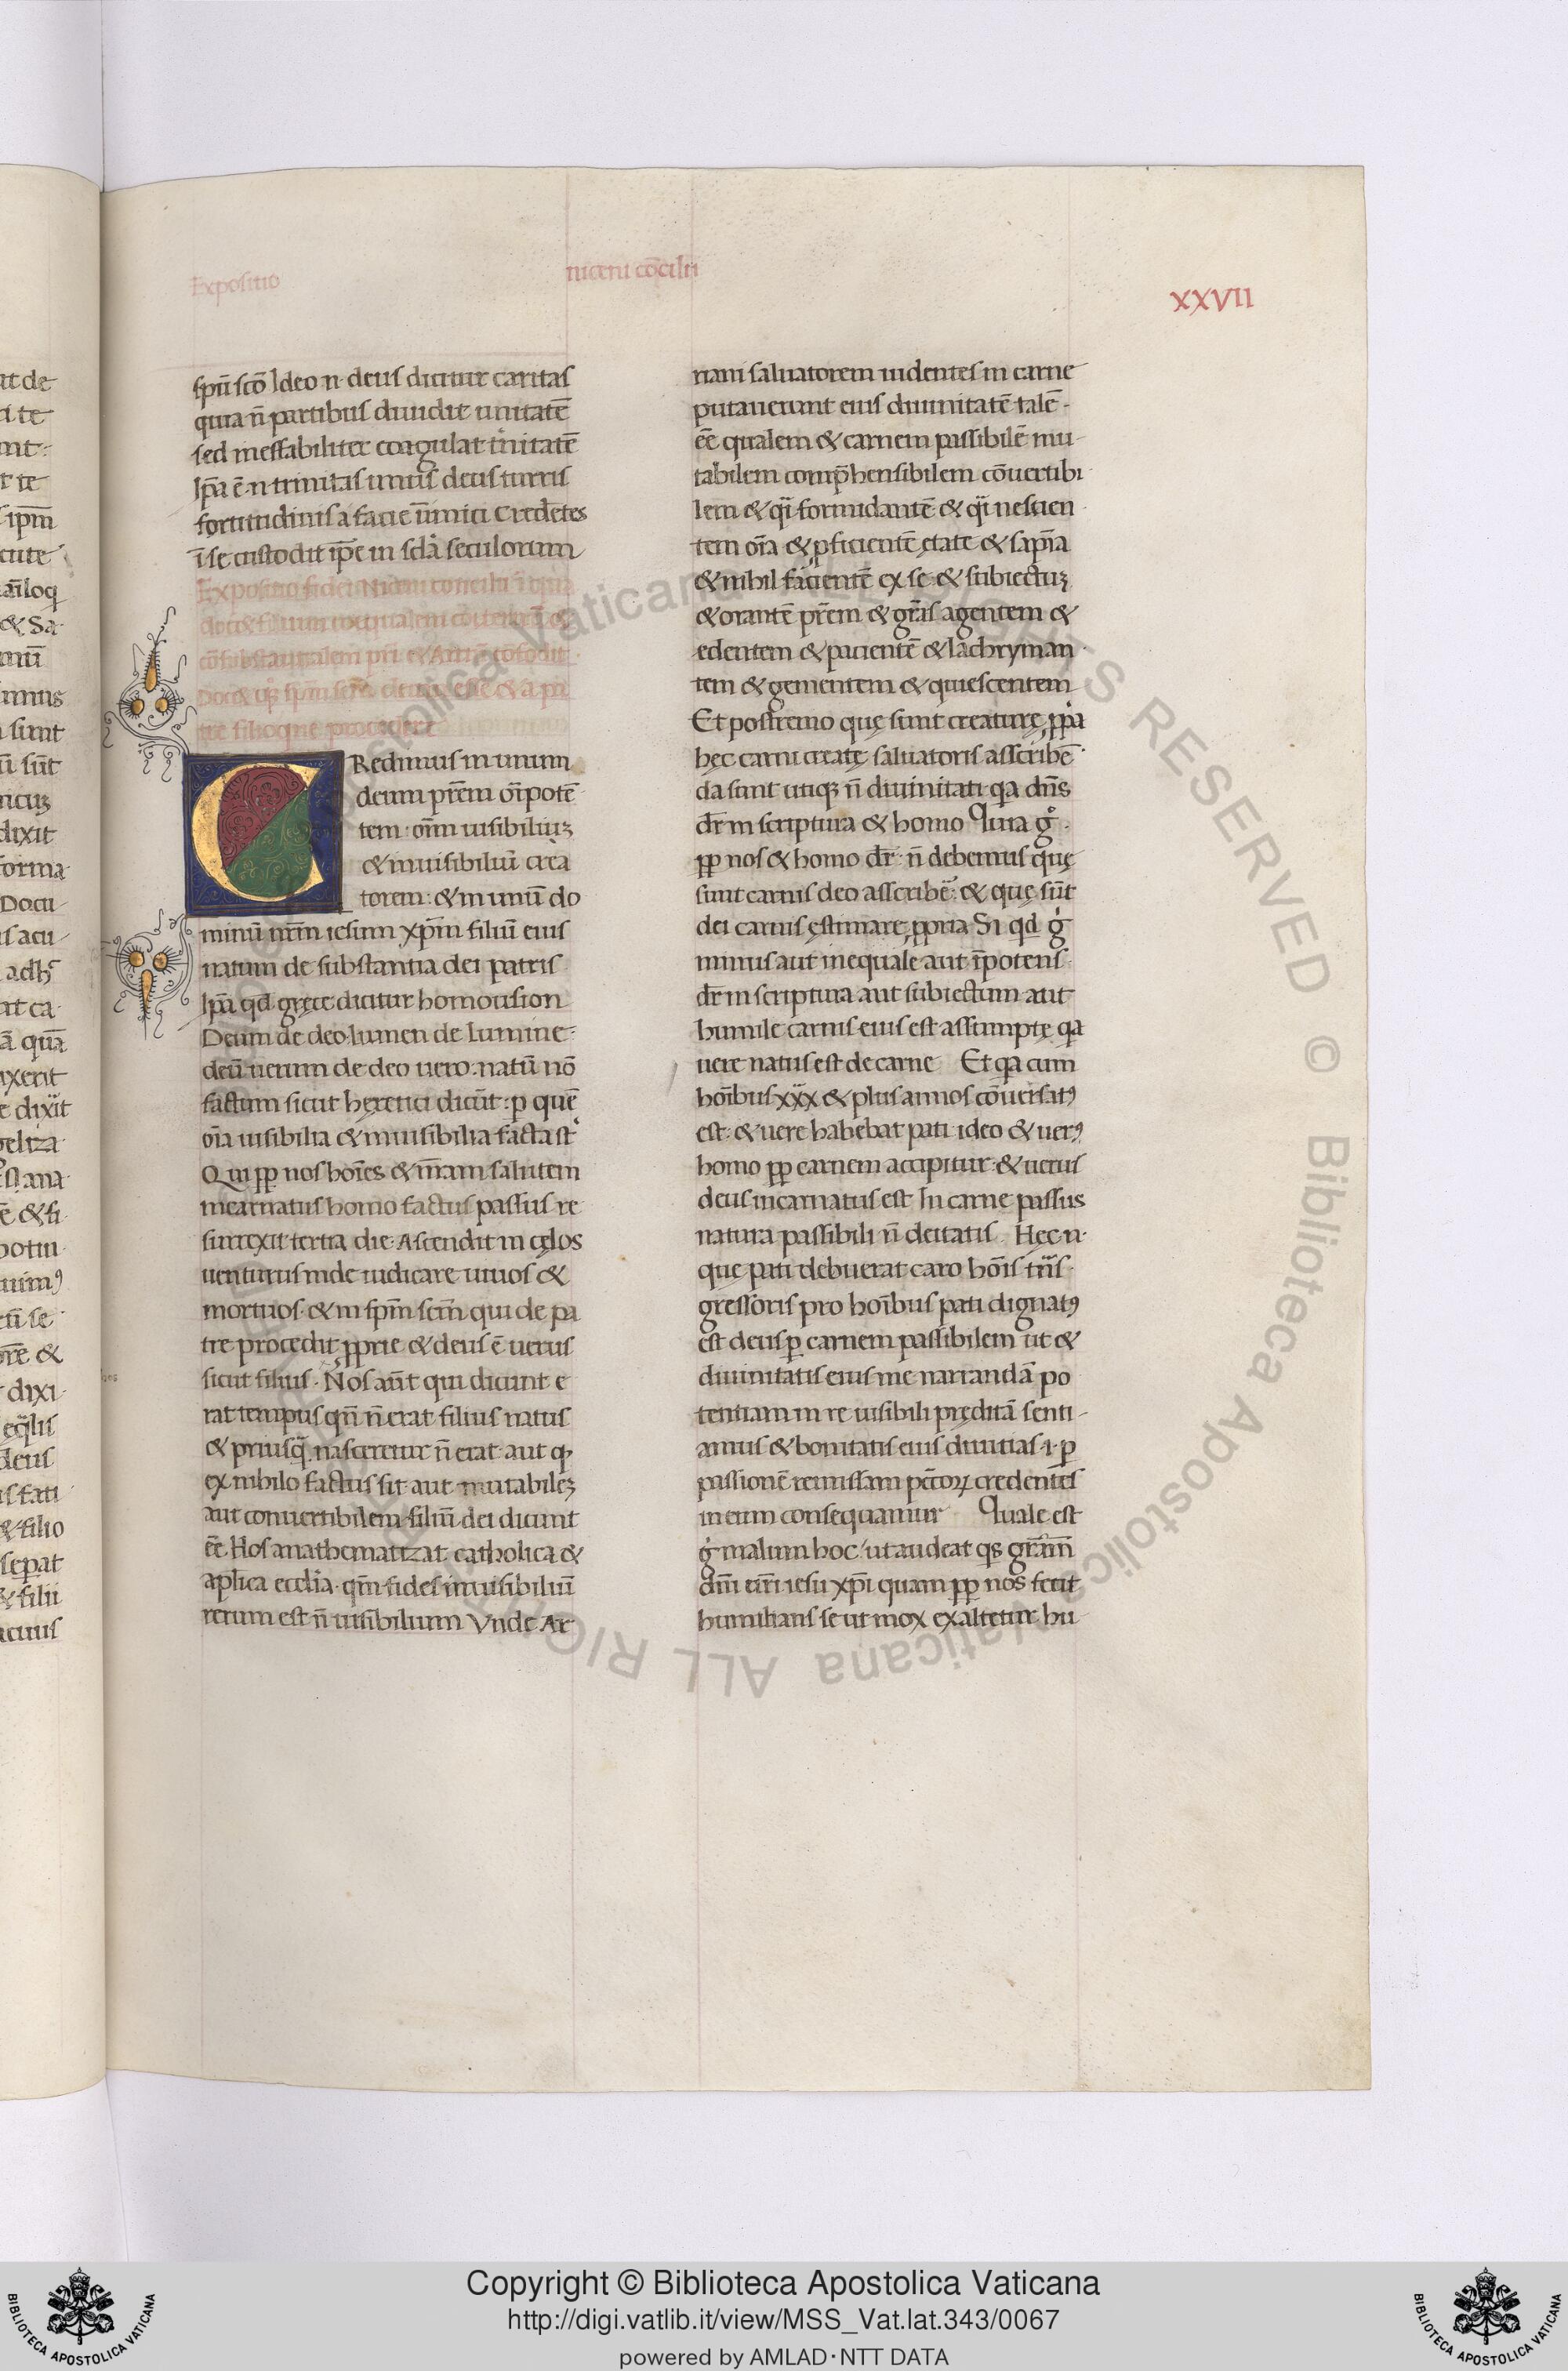 Expositio niceni cōcilii
XXVII
sp̄u sc̄o Ideo .n. deus dicitur caritas
quia n̄ partibus diuidit unitatē
sed ineffabiliter coagulat trinitatē
Ip̄a ē .n. trinitas unus deus turris
fortitudinis a facie inimici Credētes
ī se custodit ip̄e in scl̄a seculorum
Expositio fidei Niceni concilii ī qua
consubstantialem pr̄i
tre filioque procedere
CRedimus in unum
deum pr̄em om̄ipotē
tem: om̄ uisibiliuꝫ
& inuisibiliū crea
torem: & in unū do
minū nr̄m iesum xp̄m filiū eius
natum de substantia dei patris
Ip̄a qd̄ gręce dicitur homousion
Deum de deo. lumen de lumine:
deū uerum de deo uero. natū nō
factum sicut hęretici dicūt: p̲ quē
oīa uisibilia & inuisibilia facta st̄
Qui pp̄ nos hoīes & nr̄am salutem
incarnatus homo factus passus re
surrexit tertia die. Ascendit in cęlos
uenturus inde iudicare uiuos &
mortuos. & in sp̄m scm̄ qui de pa
tre procedit ꝓprie & deus ē uerus
sicut filius. Nos aūt qui dicunt e
rat tempus qn̄ n̄ erat filius natus
& priusq̄ nasceretur n̄ erat. aut qꝫ
ex nihilo factus sit aut mutabileꝫ
aut conuertibilem filiū dei dicunt
eē. Hos anathematizat catholica &
apl̄ica eccl̄ia. qm̄ fides inuisibiliū
rerum est n̄ uisibilium Vnde Ar
riani saluatorem uidentes in carne
putauerunt eius diuinitatē talē
eē qualem & carnem passibilē mu-
tabilem comp̄hensibilem cōuertibi
lem & q̄i formidantē. & q̄i nescien
tem oīa & ꝓficientē ętate & sap̄ia
& nihil facientē ex se. & subiectuꝫ
& orantē pr̄em & gr̄as agentem &
edentem & pacientē & lachryman
tem & gementem & quiescentem
Et postremo quę sunt creaturę ꝓpria
hęc carni creatę saluatoris asscribē
da sunt utiqꝫ n̄ diuinitati. qa dn̄s
dr̄ in scriptura & homo Quia g°.
pp̄ nos & homo dr̄. n̄ debemus quę
sunt carnis deo asscribē. & quę sūt
dei carnis ęstimare ꝓpria Si qd̄ g°
minus aut inequale aut īpotens
dr̄ in scriptura aut subiectum aut
humile carnis eius est assumptę qa
uere natus est de carne Et qa cum
hoībus xxx & plus annos cōuersatꝰ
est. & uere habebat pati ideo & uerꝰ
homo pp̄ carnem accipitur. & uerus
deus incarnatus est In carne passus
natura passibili n̄ deitatis. Hęc .n.
que pati debuerat caro hoīs trās
gressoris pro hoībus pati dignatꝰ
est deus p̲ carnem passibilem ut &
diuinitatis eius me narrandā po
tentiam in re uisibili pręditā senti-
amus & bonitatis eius diuitias .i. p̲
passionē remissam pc̄torꝝ credentes
in eum consequamur Quale est
g° malum hoc / ut audeat qs gr̄am
dn̄i nr̄i iesu xp̄i quam pp̄ nos fecit
humilians se ut mox exaltetur hu
Copyright © Biblioteca Apostolica Vaticana
http://digi.vatlib.it/view/MSS_Vat.lat.343/0067
powered by AMLAD·NTT DATA